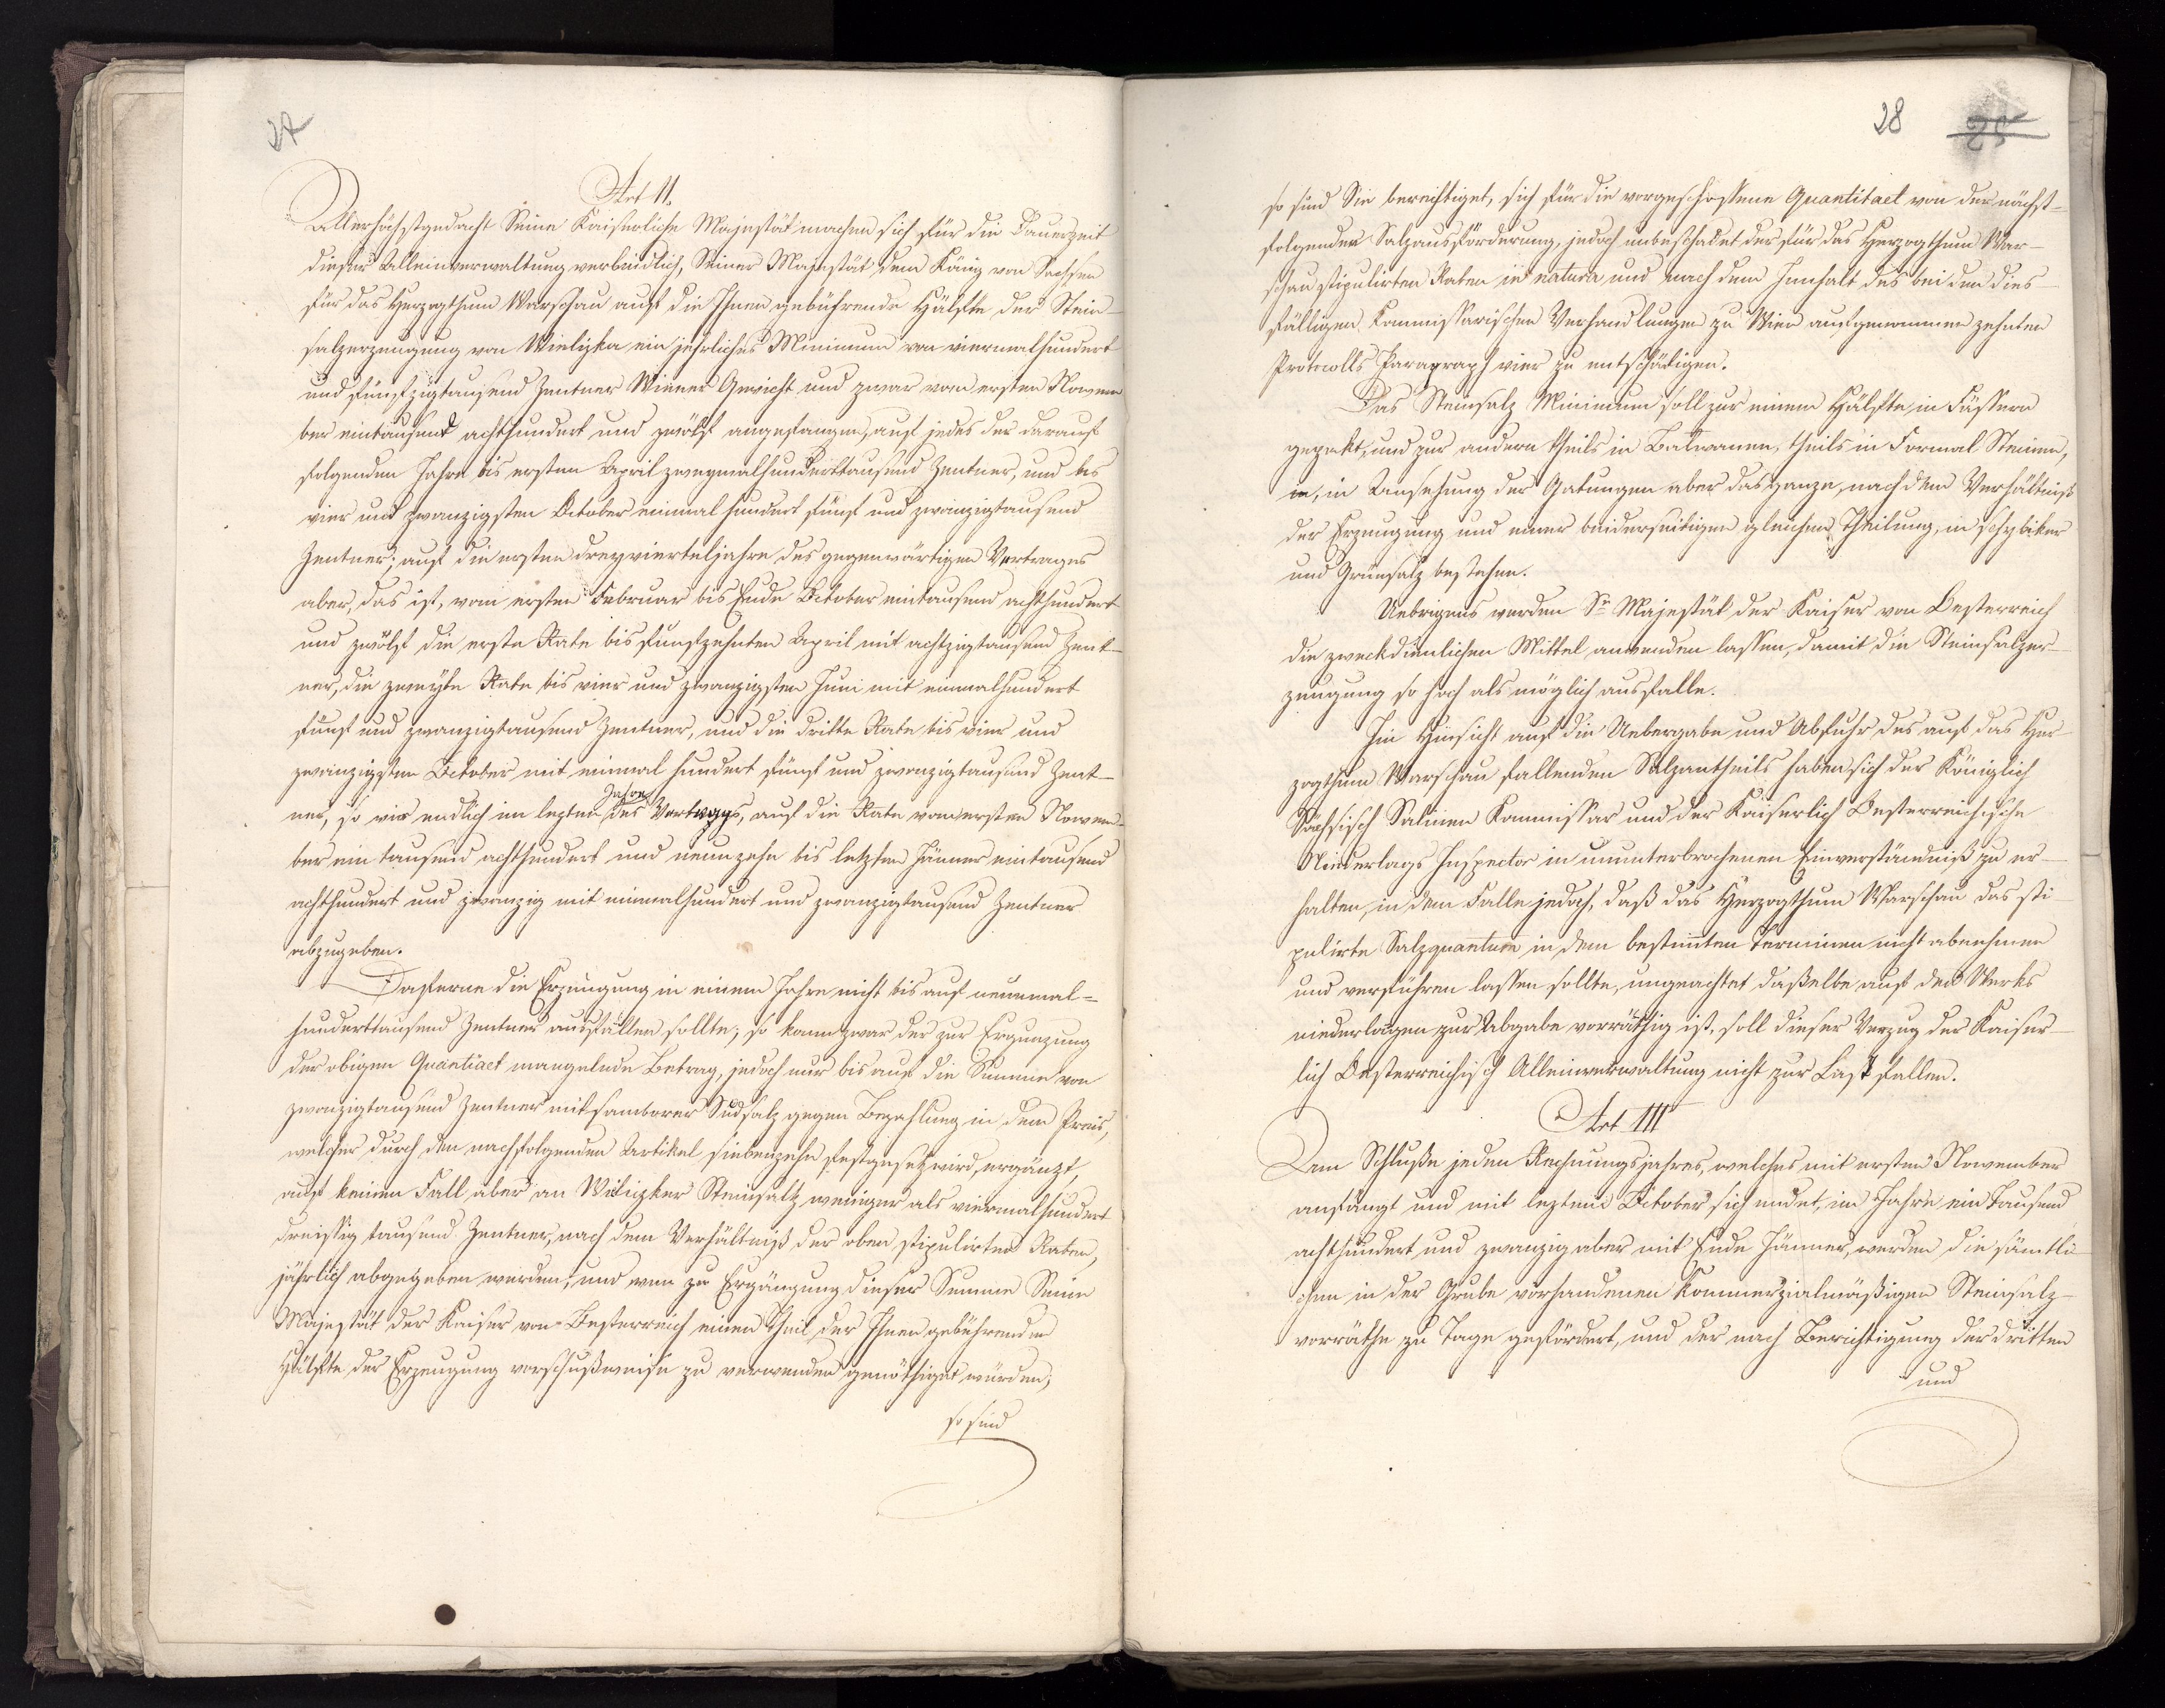 27
Art II.
Allerhöchstgedacht Seine Kaiserliche Majestät machen sich für die Dauerzeit
dieser Alleinverwaltung verbindlich, Seiner Majestät dem König von Sachsen
für das Herzogthum Warschau auf die Ihnen gebührende Hälfte der Stein-
salzerzeugung von Wielizka ein jehrliches Minimum von viermalhundert
und fünfzigtausend Zentner Wiener Gewicht und zwar vom ersten Novem
ber eintausend achthundert und zwölf angefangen, auf jedes der darauf
folgenden Jahre bis ersten April zweymalhunderttausend Zentner, und bis
vier und zwanzigsten October einmal hundert fünf und zwanzigtausend
Zentner; auf die ersten dreyvierteljahre des gegenwärtigen Vertrages
aber, das ist, vom ersten Februar bis Ende October eintausend achthundert
und zwölf die erste Rate bis funfzehnten April mit achtzigtausend Zent-
ner, die zweyte Rate bis vier und zwanzigsten Juni mit einmalhundert
fünf und zwanzigtausend Zentner, und die dritte Rate bis vier und
zwanzigsten October mit einmal hundert fünf und zwanzigtausend Zent-
Jahre
ner, so wie endlich im lezten des Vertrags, auf die Rate vom ersten Novem-
ber ein tausend achthundert und neunzehn bis letzten Jänner eintausend
achthundert und zwanzig mit einmalhundert und zwanzigtausend Zentner
abzugeben.
Daferne die Erzeugung in einem Jahre nicht bis auf neunmal-
hunderttausend Zentner ausfallen sollte; so kann zwar der zur Ergänzung
der obigen Quantiaet mangelnde Betrag, jedoch nur bis auf die Summe von
zwanzigtausend Zentner mit samborer Sudsalz gegen Bezahlung in dem Preis,
welcher durch den nachfolgenden Artikel siebenzehn festgesetz wird, ergänzt,
auf keinen Fall aber an Wilizker Steinsaltz weniger als viermalhundert
dreissig tausend Zentner, nach dem Verhältniß der oben stipulirten Raten,
jährlich abgegeben werden; und wen zu Ergänzung dieser Summe Seine
Majestät der Kaiser von Oesterreich einen Theil der Ihnen gebührenden
Hälfte der Erzeugung vorschußweise zu verwenden genöthiget würden;
so sind
28
so sind Sie berechtiget, sich für die vorgeschossene Quantitaet von der nächst-
folgenden Salzausförderung, jedoch unbeschadet der für das Herzogthum War-
schau stipulirten Raten in natura und nach dem Innhalt des bei den dies-
fälligen Kommissarischen Verhandlungen zu Wien aufgenommen zehnten
Protocolls Paragraph vier zu entschädigen.
Das Steinsalz Minimum soll zur einem Hälfte in Fässern
gepakt, und zur andern theils in Balwanen, theils in Formal Steinen,
in, in Ansehung der Gatungen aber das ganze, nach dem Verhältniß
der Erzeugung und einer beiderseitigen gleichen Theilung, in schybiker
und Grünsalz bestehen.
Uebrigens werden Sr Majestät der Kaiser von Oesterreich
die zweckdienlichen Mittel anwenden lassen, damit die Steinsalzer-
zeugung so hoch als möglich ausfalle.
In Hinsicht auf die Uebergabe und Abfuhr des auf das Her-
zogthum Warschau fallenden Salzantheils haben sich der Königlich
Sächsisch Salinen Kommissar und der Kaiserlich Oesterreichische
Niederlags Inspector in ununterbrochenen Einverständniß zu er-
halten, in dem Falle jedoch, daß das Herzogthum Warschau das sti-
pulirte Salzquantum in dem bestimten Terminen nicht abnehmen
und verführen lassen sollte, ungeachtet dasselbe auf den Werks
niederlagen zur Abgabe vorräthig ist, soll dieser Verzug der Kaiser-
lich Oesterreichisch Alleinverwaltung nicht zur Last fallen.
Art III
Dem Schluße jeden Rechnungsjahres, welches mit ersten November
anfängt und mit leztend October sich endet, im Jahre ein tausend
achthundert und zwanzig aber mit Ende Jänner, werden die sämtli
chen in der Grube vorhandenen kommerzialmäßigen Steinsalz-
vorräthe zu Tage gefördert, und der nach Berichtigung der dritten
und